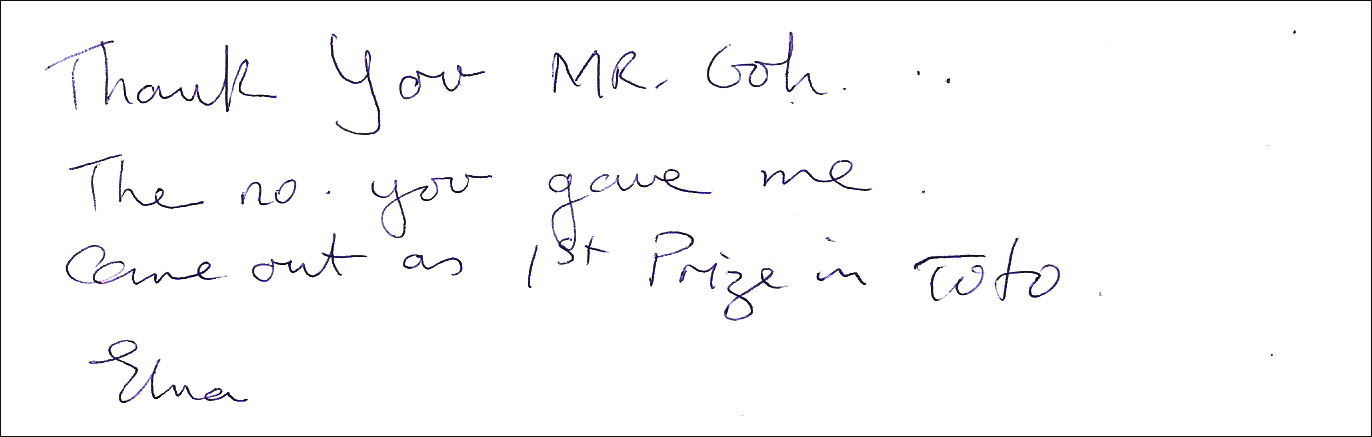 Thank You MR. Goh.
The no. you gave me.
Came out as 1st Prize in Toto.
Elna